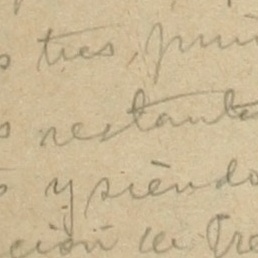 s tres, prin
s restante
s y siendo
ción